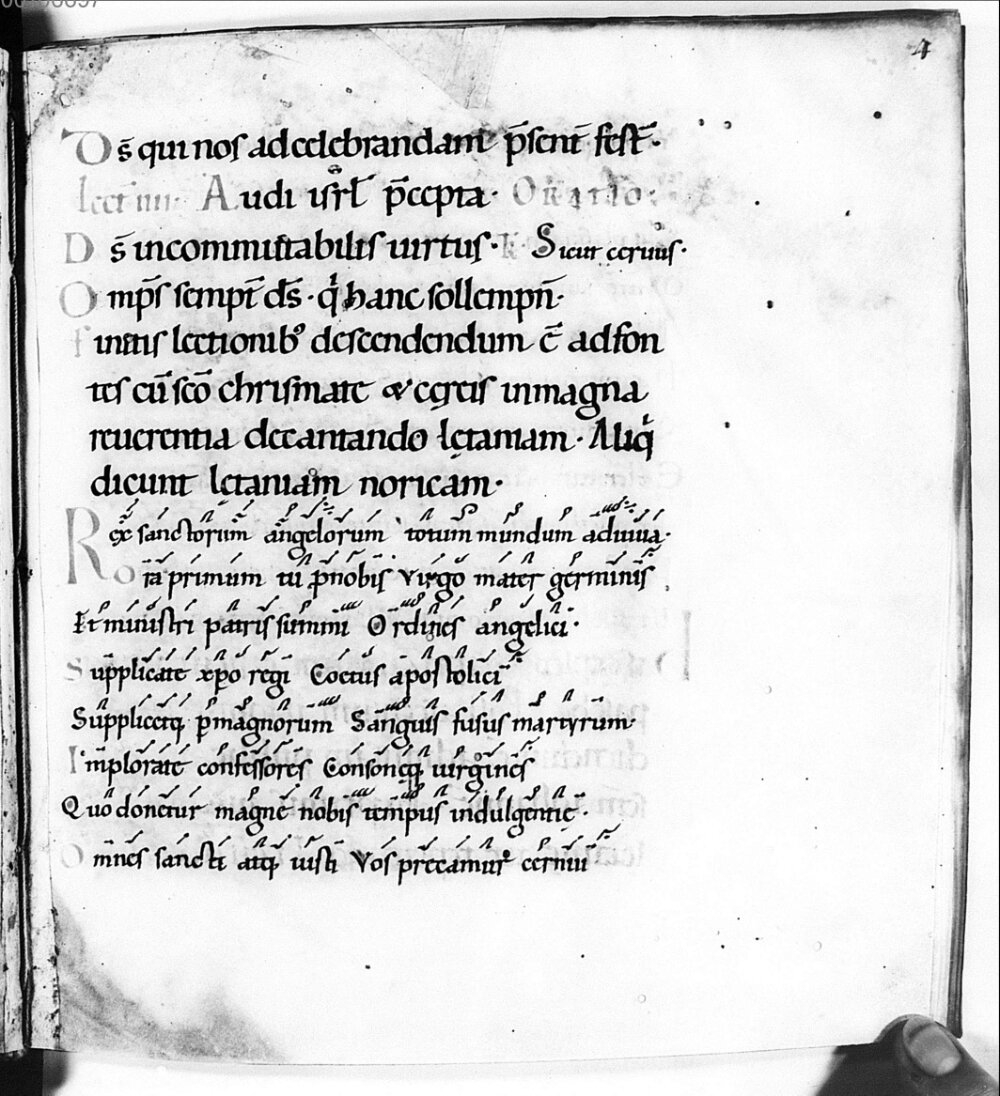 4
Ds̄ qui nos ad celebrandam p̄sent̄ fest̄·
lect iiii· Audi isrl̄ p̄cepta· Oratio:
Ds̄ incommutabilis uirtus· Sicut ceruus·
Omp̄s sempt̄ ds̄· qͥ hanc sollempn̄·
finitis lectionibꝰ descendendum ē ad fon
tes cū sc̄o chrismate & cęreis in magna
reuerentia decantando lętaniam· Aliqͥ
dicunt lętaniam noricam·
Rex sanctorum angelorum totum mundum adiuua·
Ora primum tu p̄ nobis Virgo mater germinis
Et ministri patris summi Ordines angelici·
Supplicate xp̄o regi Coetus apostolici
Supplicetq; p̄magnorum Sanguis fusus martyrum·
Implorate confessores Consoneq; uirgines
Quo donetur magnę nobis tempus indulgentię·
Omnes sancti atq; iusti Vos precamur cernui